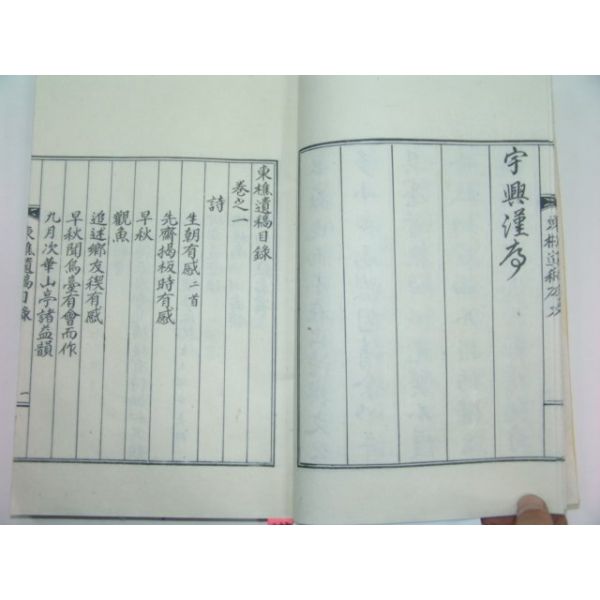 東樵遺稿序
宇興漢序
東樵遺稿目錄
卷之一
詩
生朝有感二首
先齋揭板時有感
早秋
觀魚
追述鄉友稧有感
早秋聞鳥臺有會而作
九月次華山亭諸益韻
東樵遺稿目錄 一